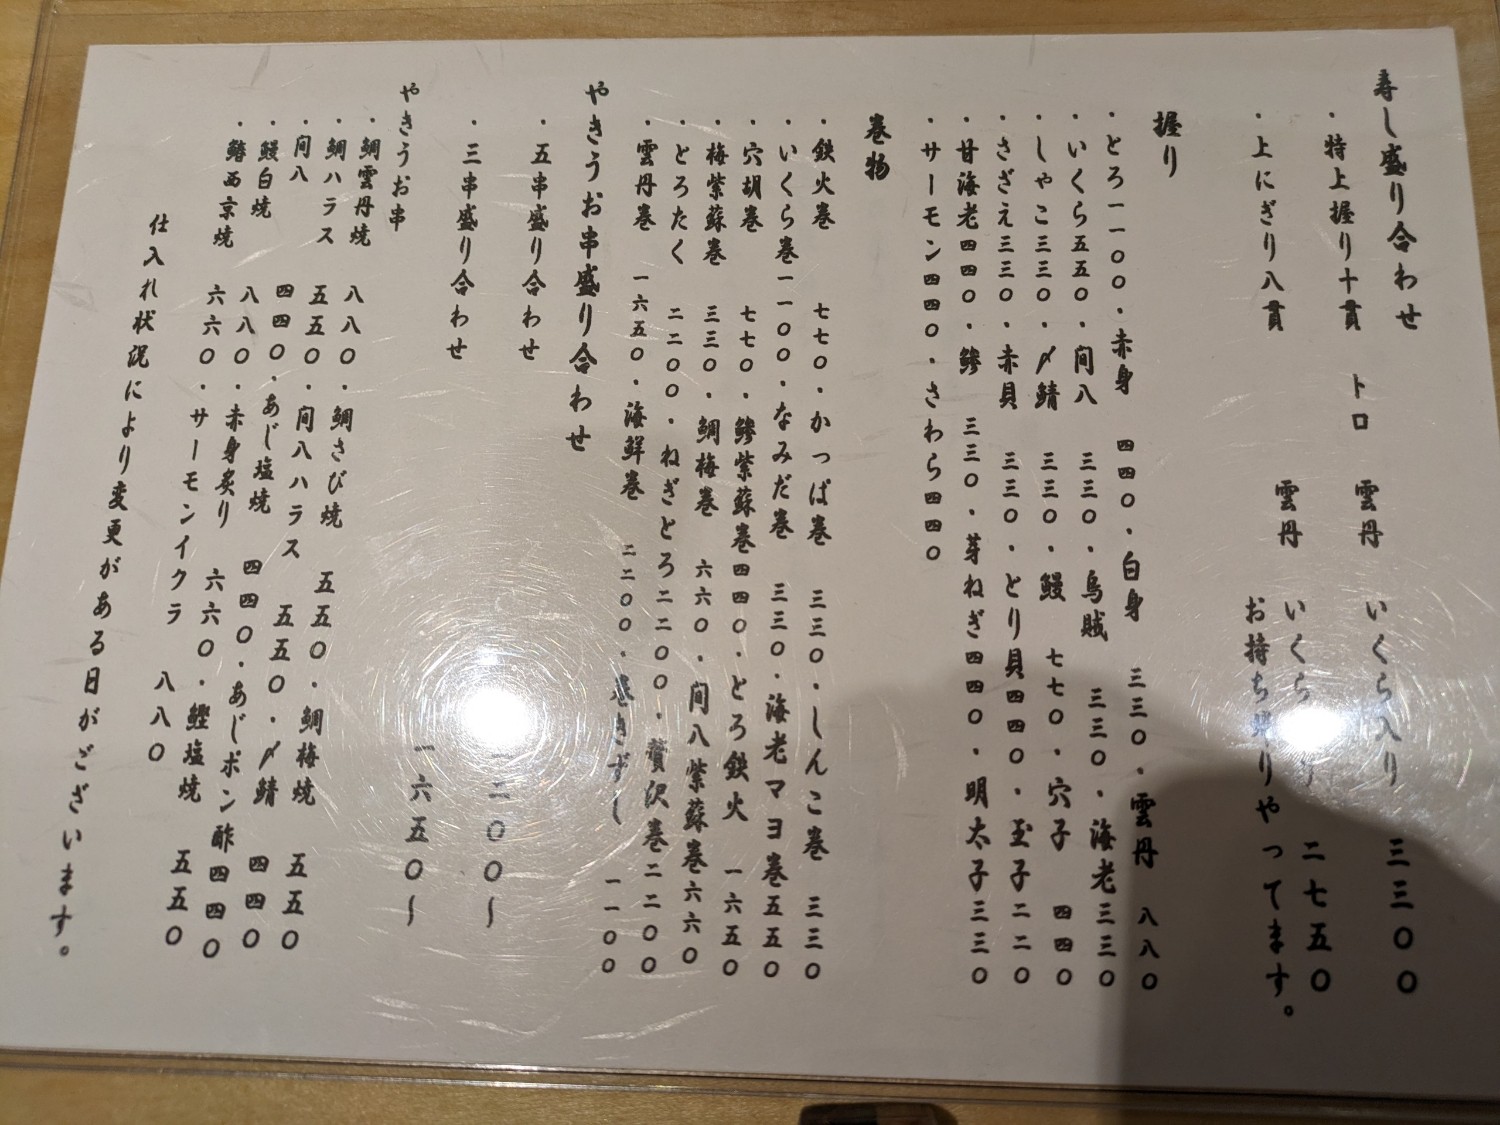 寿し盛り合わせ
・特上握り十貫 トロ 雲丹 いくら入り 三三〇〇
・上にぎり八貫 雲丹 いくら 二七五〇
お持ち帰りやってます。
握り
・とろ一一〇〇・赤身 四四〇・白身 三三〇・雲丹 八八〇
・いくら五五〇・間八 三三〇・烏賊 三三〇・海老三三〇
・しゃこ三三〇・〆鯖 三三〇・鰻 七七〇・穴子 四四〇
・さざえ三三〇・赤貝 三三〇・とり貝四四〇・玉子二二〇
・甘海老四四〇・鯵 三三〇・芽ねぎ四四〇・明太子三三〇
・サーモン四四〇・さわら四四〇
巻物
・鉄火巻 七七〇・かっぱ巻 三三〇・しんこ巻 三三〇
・いくら巻一一〇〇・なみだ巻 三三〇・海老マヨ巻五五〇
・穴胡巻 七七〇・鯵紫蘇巻四四〇・とろ鉄火 一六五〇
・梅紫蘇巻 三三〇・鯛梅巻 六六〇・間八紫蘇巻六六〇
・とろたく 二二〇〇・ねぎとろ二二〇〇・贅沢巻二二〇〇
・雲丹巻 一六五〇・海鮮巻 二二〇〇・巻きずし 一一〇〇
やきうお串盛り合わせ
・五串盛り合わせ 二〇〇〜
・三串盛り合わせ 一六五〇〜
やきうお串
・鯛雲丹焼 八八〇・鯛さび焼 五五〇・鯛梅焼 五五〇
・鯛ハラス 五五〇・間八ハラス 五五〇・〆鯖 四四〇
・間八 四四〇・あじ塩焼 四四〇・あじポン酢四四〇
・鰻白焼 八八〇・赤身炙り 六六〇・鰹塩焼 五五〇
・鰆西京焼 六六〇・サーモンイクラ 八八〇
仕入れ状況により変更がある日がございます。